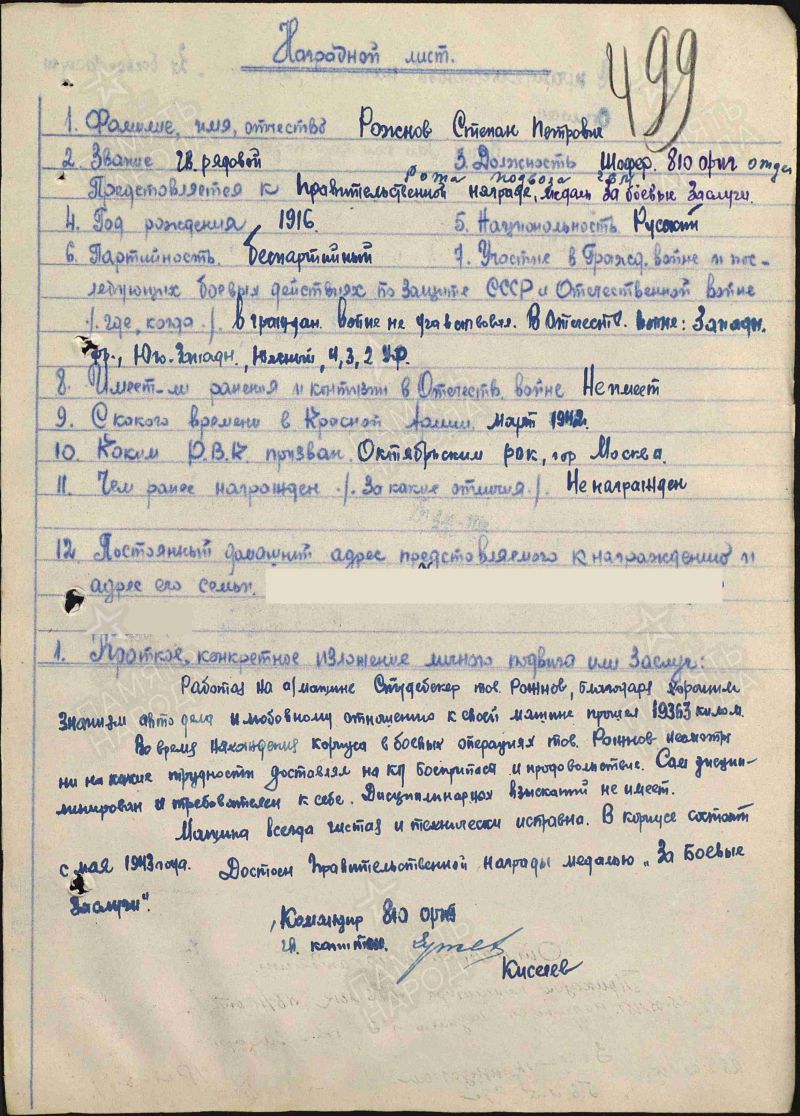 Наградной лист.
499
1. Фамилие, имя, отчество Рожнов Степан Петрович
2. Звание гв. рядовой 3. Должность Шофер. 810 орпг
рота подвоза
Представляется к правительственной награде, медаль За боевые Заслуги.
4. Год рождения 1916. 5. Национальность Русский
6. Партийность беспартийный 7. Участие в Гражд. войне и пос-
ледующих боевых действиях по защите СССР и Отечественной войне
/. где, когда ./. в граждан. войне не участвовал. В Отечеств. войне: Западн.
фр., Юго-Западн., Южный, 4, 3, 2 Укр.
8. Имеет-ли ранения и контузии в Отечеств. войне Не имеет
9. С какого времени в Красной Армии март 1942г.
10. Каким Р.В.К призван. Октябрьским рвк, гор Москва.
11. Чем ранее награжден ./. За какие отличия ./. Не награжден
12. Постоянный домашний адрес представляемого к награждению и
адрес его семьи.
1. Краткое, конкретное изложение личного подвига или заслуг:
Работая на а/машине Студебекер тов. Рожнов, благодаря хорошим
знаниям авто дела и любовному отношению к своей машине прошел 19363 килом.
Во время нахождения корпуса в боевых операциях тов. Рожнов несмотря
ни на какие трудности доставлял на КП боеприпасы и продовольствие. Сам дисцип-
линирован и требователен к себе. Дисциплинарных взысканий не имеет.
Машина всегда чистая и технически исправна. В корпусе состоит
с мая 1943 года. Достоен правительственной награды медалью „За Боевые
Заслуги".
Командир 810
гв. капитан
Киселев
ПАМЯТЬ НАРОДА